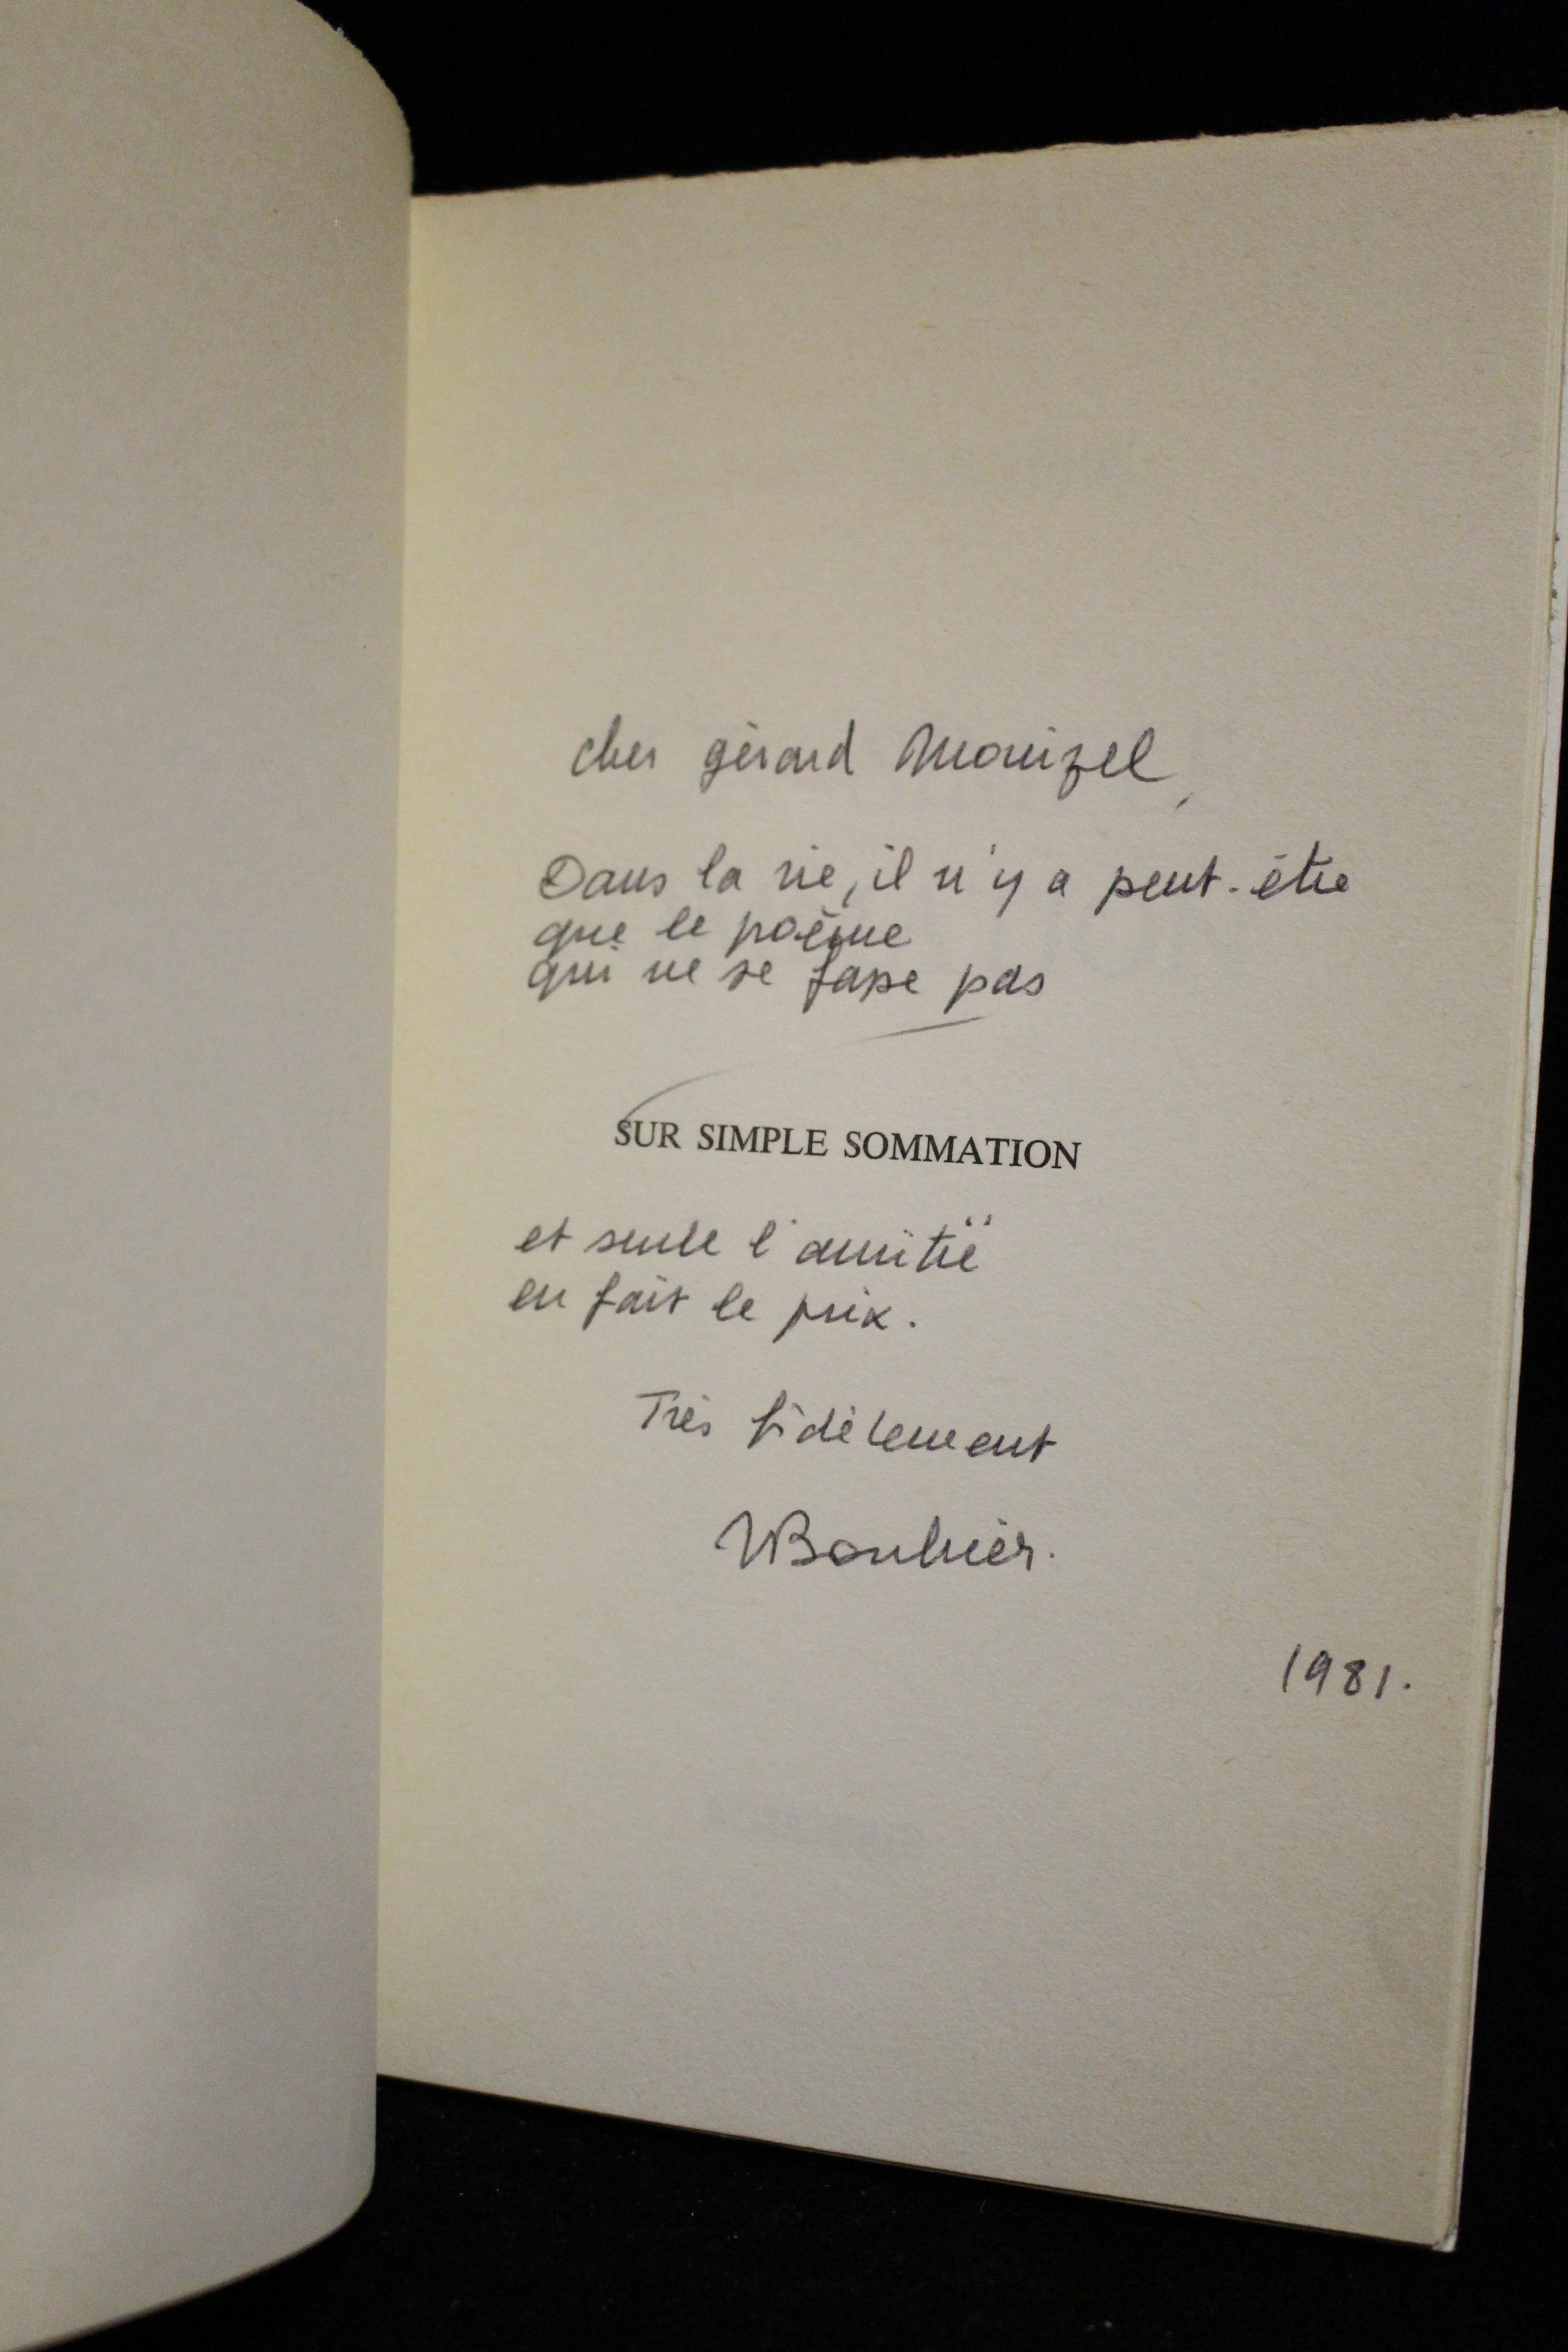 cher gérard Mourizel,
Dans la vie, il n'y a peut-être
que le poème
qui ne se fasse pas
SUR SIMPLE SOMMATION
et seule l'amitié
en fait le prix.
Très fidèlement
1981.